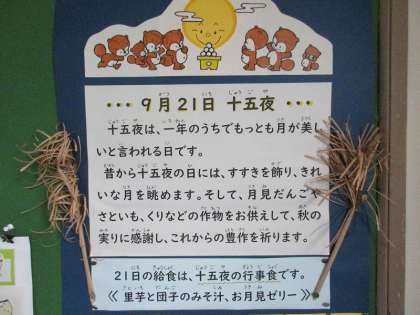 ••• 9月21日 十五夜 •••
十五夜は、一年のうちでもっとも月が美し
いと言われる日です。
昔から十五夜の日には、すすきを飾り、きれ
いな月を眺めます。そして、月見だんごや
さといも、くりなどの作物をお供えして、秋の
実りに感謝し、これからの豊作を祈ります。
21日の給食は、十五夜の行事食です。
《 里芋と団子のみそ汁、お月見ゼリー 》